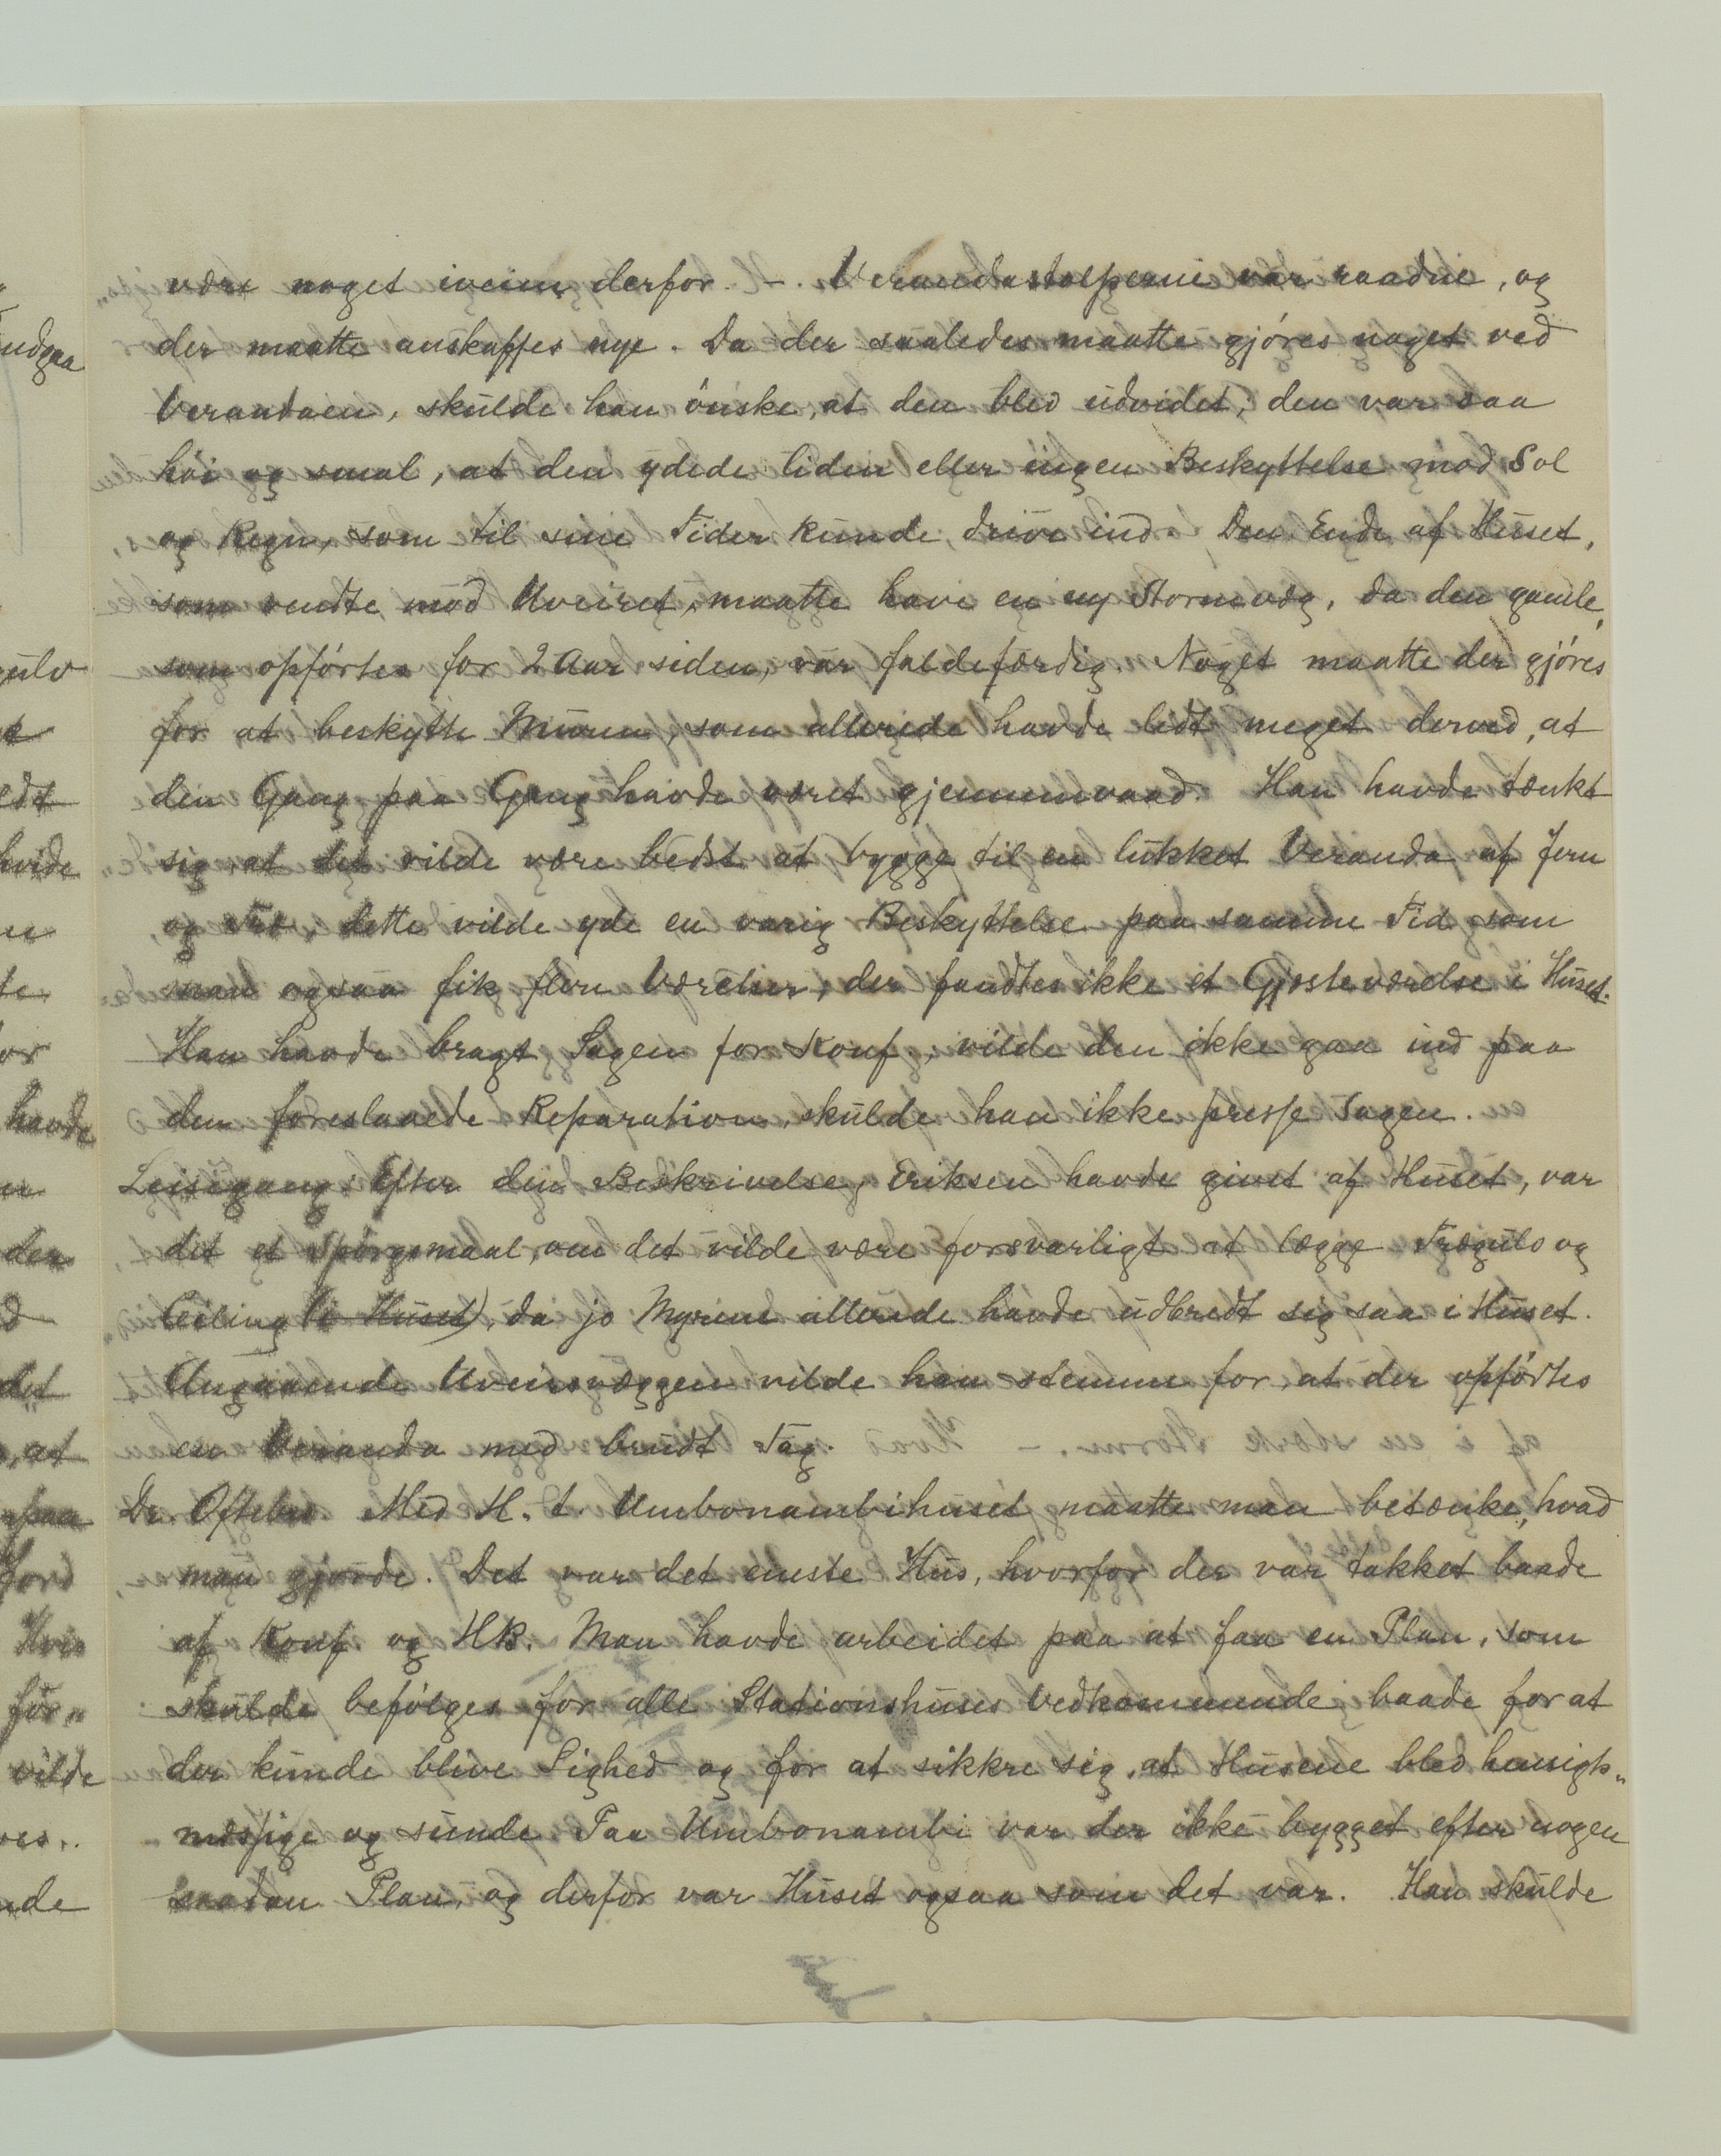 være noget iveien derfor. –. Verandastolperne var raadne, og
der maatte anskaffes nye. Da der saaledes maatte gjóres noget ved
Verandaen, skulde han ónske, at den blev udvidet; den var saa
hói og smal, at den ydede liden eller ingen Beskyttelse mod Sol
og Regn, som til sine Tider kunde drive ind. Den Ende af Huset,
som vendte mod Uveiret, maatte have en ny Stormvæg, da den gamle,
som opfórtes for 2 Aar siden, var faldefærdig. Noget maatte der gjóres
for at beskytte Muren, som allerede havde lidt meget derved, at
den Gang paa Gang havde været gjennemvaad. Han havde tænkt
sig, at det vilde være bedst at bygge til en lukket Veranda af Jern
og Træ, dette vilde yde en varig Beskyttelse paa samme Tid som
man ogsaa fik flere Værelser; der fandtes ikke et Gjesteværelse i Huset.
Han havde bragt Sagen for Konf., vilde den ikke gaa ind paa
den foreslaaede Reparation, skulde han ikke presse Sagen.
Leisegang: Efter den Beskrivelse, Eriksen havde givet af Huset, var
det et Spórgsmaal, om det vilde være forsvarligt at lægge Trægulv og
Ceiling (i Huset), da jo Myrene allerede havde udbredt sig saa i Huset.
Angaaende Uveirsvæggen vilde han stemme for, at der opfórtes
en Veranda med brudt Tag.
Dr. Oftebro. Med H. t. Umbonambihuset maatte man betænke, hvad
man gjorde. Det var det eneste Hus, hvorfor der var takket baade
af Konf. og HB. Man havde arbeidet paa at faa en Plan, som
skulde befólges for alle Stationshuses Vedkommende baade for at
der kunde blive Lighed og for at sikkre sig, at Husene blev hensigts„
mæssige og sunde. Paa Umbonambi var der ikke bygget efter nogen
saadan Plan, og derfor var Huset ogsaa som det var. Han skulde